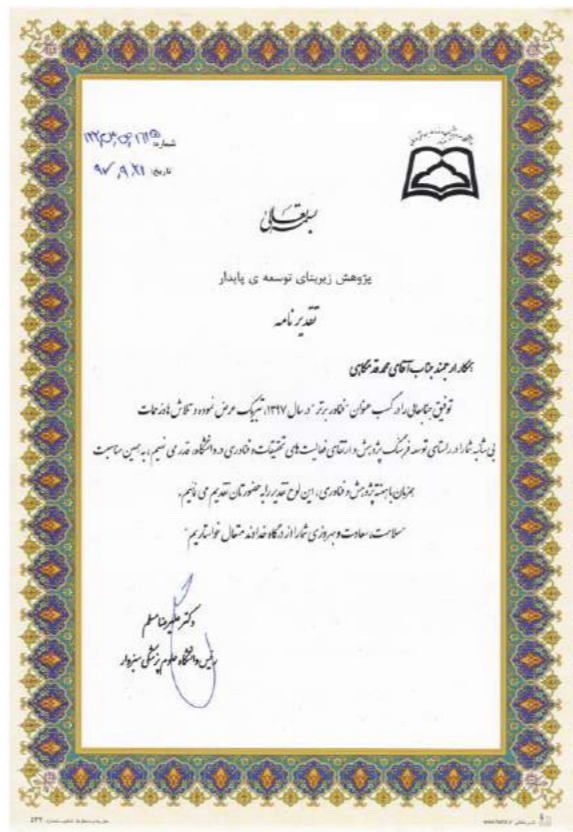 شماره:
تاریخ: ۹۷،۹،۲۱
بسمه تعالی
پژوهش زیربنای توسعه ی پایدار
تقدیر نامه
همکار ارجمند جناب آقای محمد قدمگاهی
توفیق جنابعالی را در کسب عنوان "فناور برتر" در سال ۱۳۹۷، تبریک عرض نموده و تلاش ها و زحمات
بی شائبه شما را در راستای توسعه فرهنگ پژوهش و ارتقای فعالیت های تحقیقات و فناوری در دانشگاه، قدر می نهیم، به همین مناسبت
همزمان با هفته پژوهش و فناوری، این لوح تقدیر را به حضورتان تقدیم می نمائیم.
"سلامت، سعادت و بهروزی شما را از درگاه خداوند متعال خواستاریم"
دکتر علیرضا مسلم
رئیس دانشگاه علوم پزشکی سبزوار